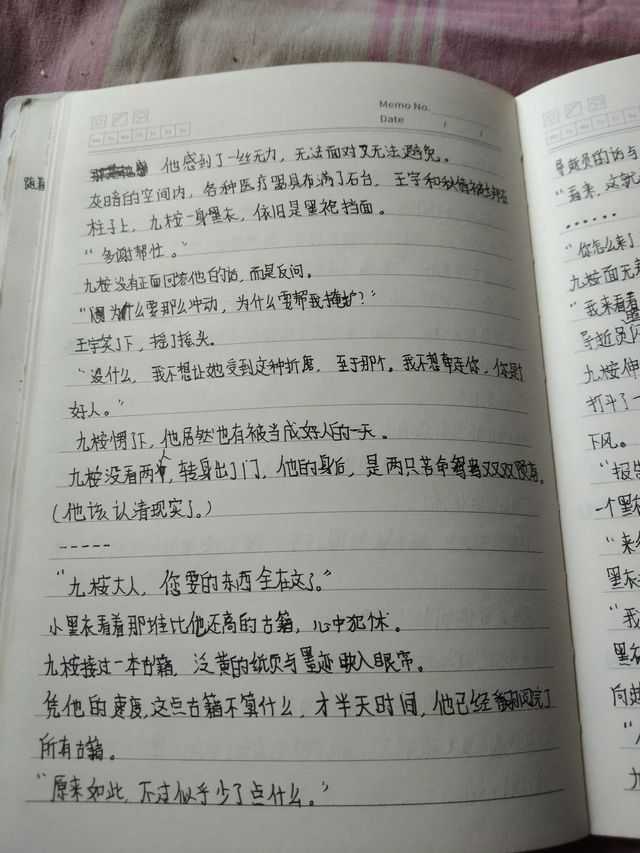 Memo No.
Date / /
Mo Tu We Th Fr Sa Su
他感到了一丝无力，无法面对又无法避免。
灰暗的空间内，各种医疗器具布满了石台，王宇和秋倩被绑在
柱子上，九桉一身黑衣，依旧是黑袍挡面。
“多谢帮忙。”
九桉没有正面回答他的话，而是反问。
“为什么要那么冲动，为什么要帮我掩护？”
王宇笑了下，摇了摇头。
“没什么，我不想让她受到这种折磨，至于那个。我不想牵连你，你是个
好人。”
九桉愣了下，他居然也有被当成好人的一天。
九桉没看两个，转身出了门，他的身后，是两只苦命鸳鸯双双殒身。
（他该认清现实了。）
-----
“九桉大人，您要的东西全在这了。”
小黑衣看着那堆比他还高的古籍，心中犯怵。
九桉接过一本古籍，泛黄的纸页与墨迹映入眼帘。
凭他的速度，这点古籍不算什么，才半天时间，他已经翻阅完了
所有古籍。
“原来如此，不过似乎少了点什么。”
随着
的话与
“看来，这就
......
“你怎么来了
九桉面无
“我来看看
九桉伸
打斗了一
下风。
“报告
一个黑衣
“来
黑衣
“我
黑衣
向
九